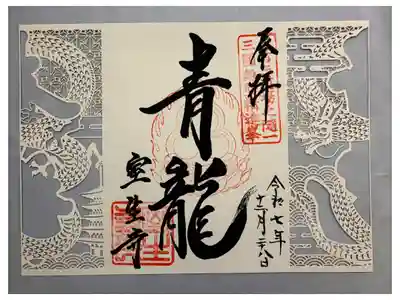 奉拝
令和七年
十二月二十八日
青龍
室生寺